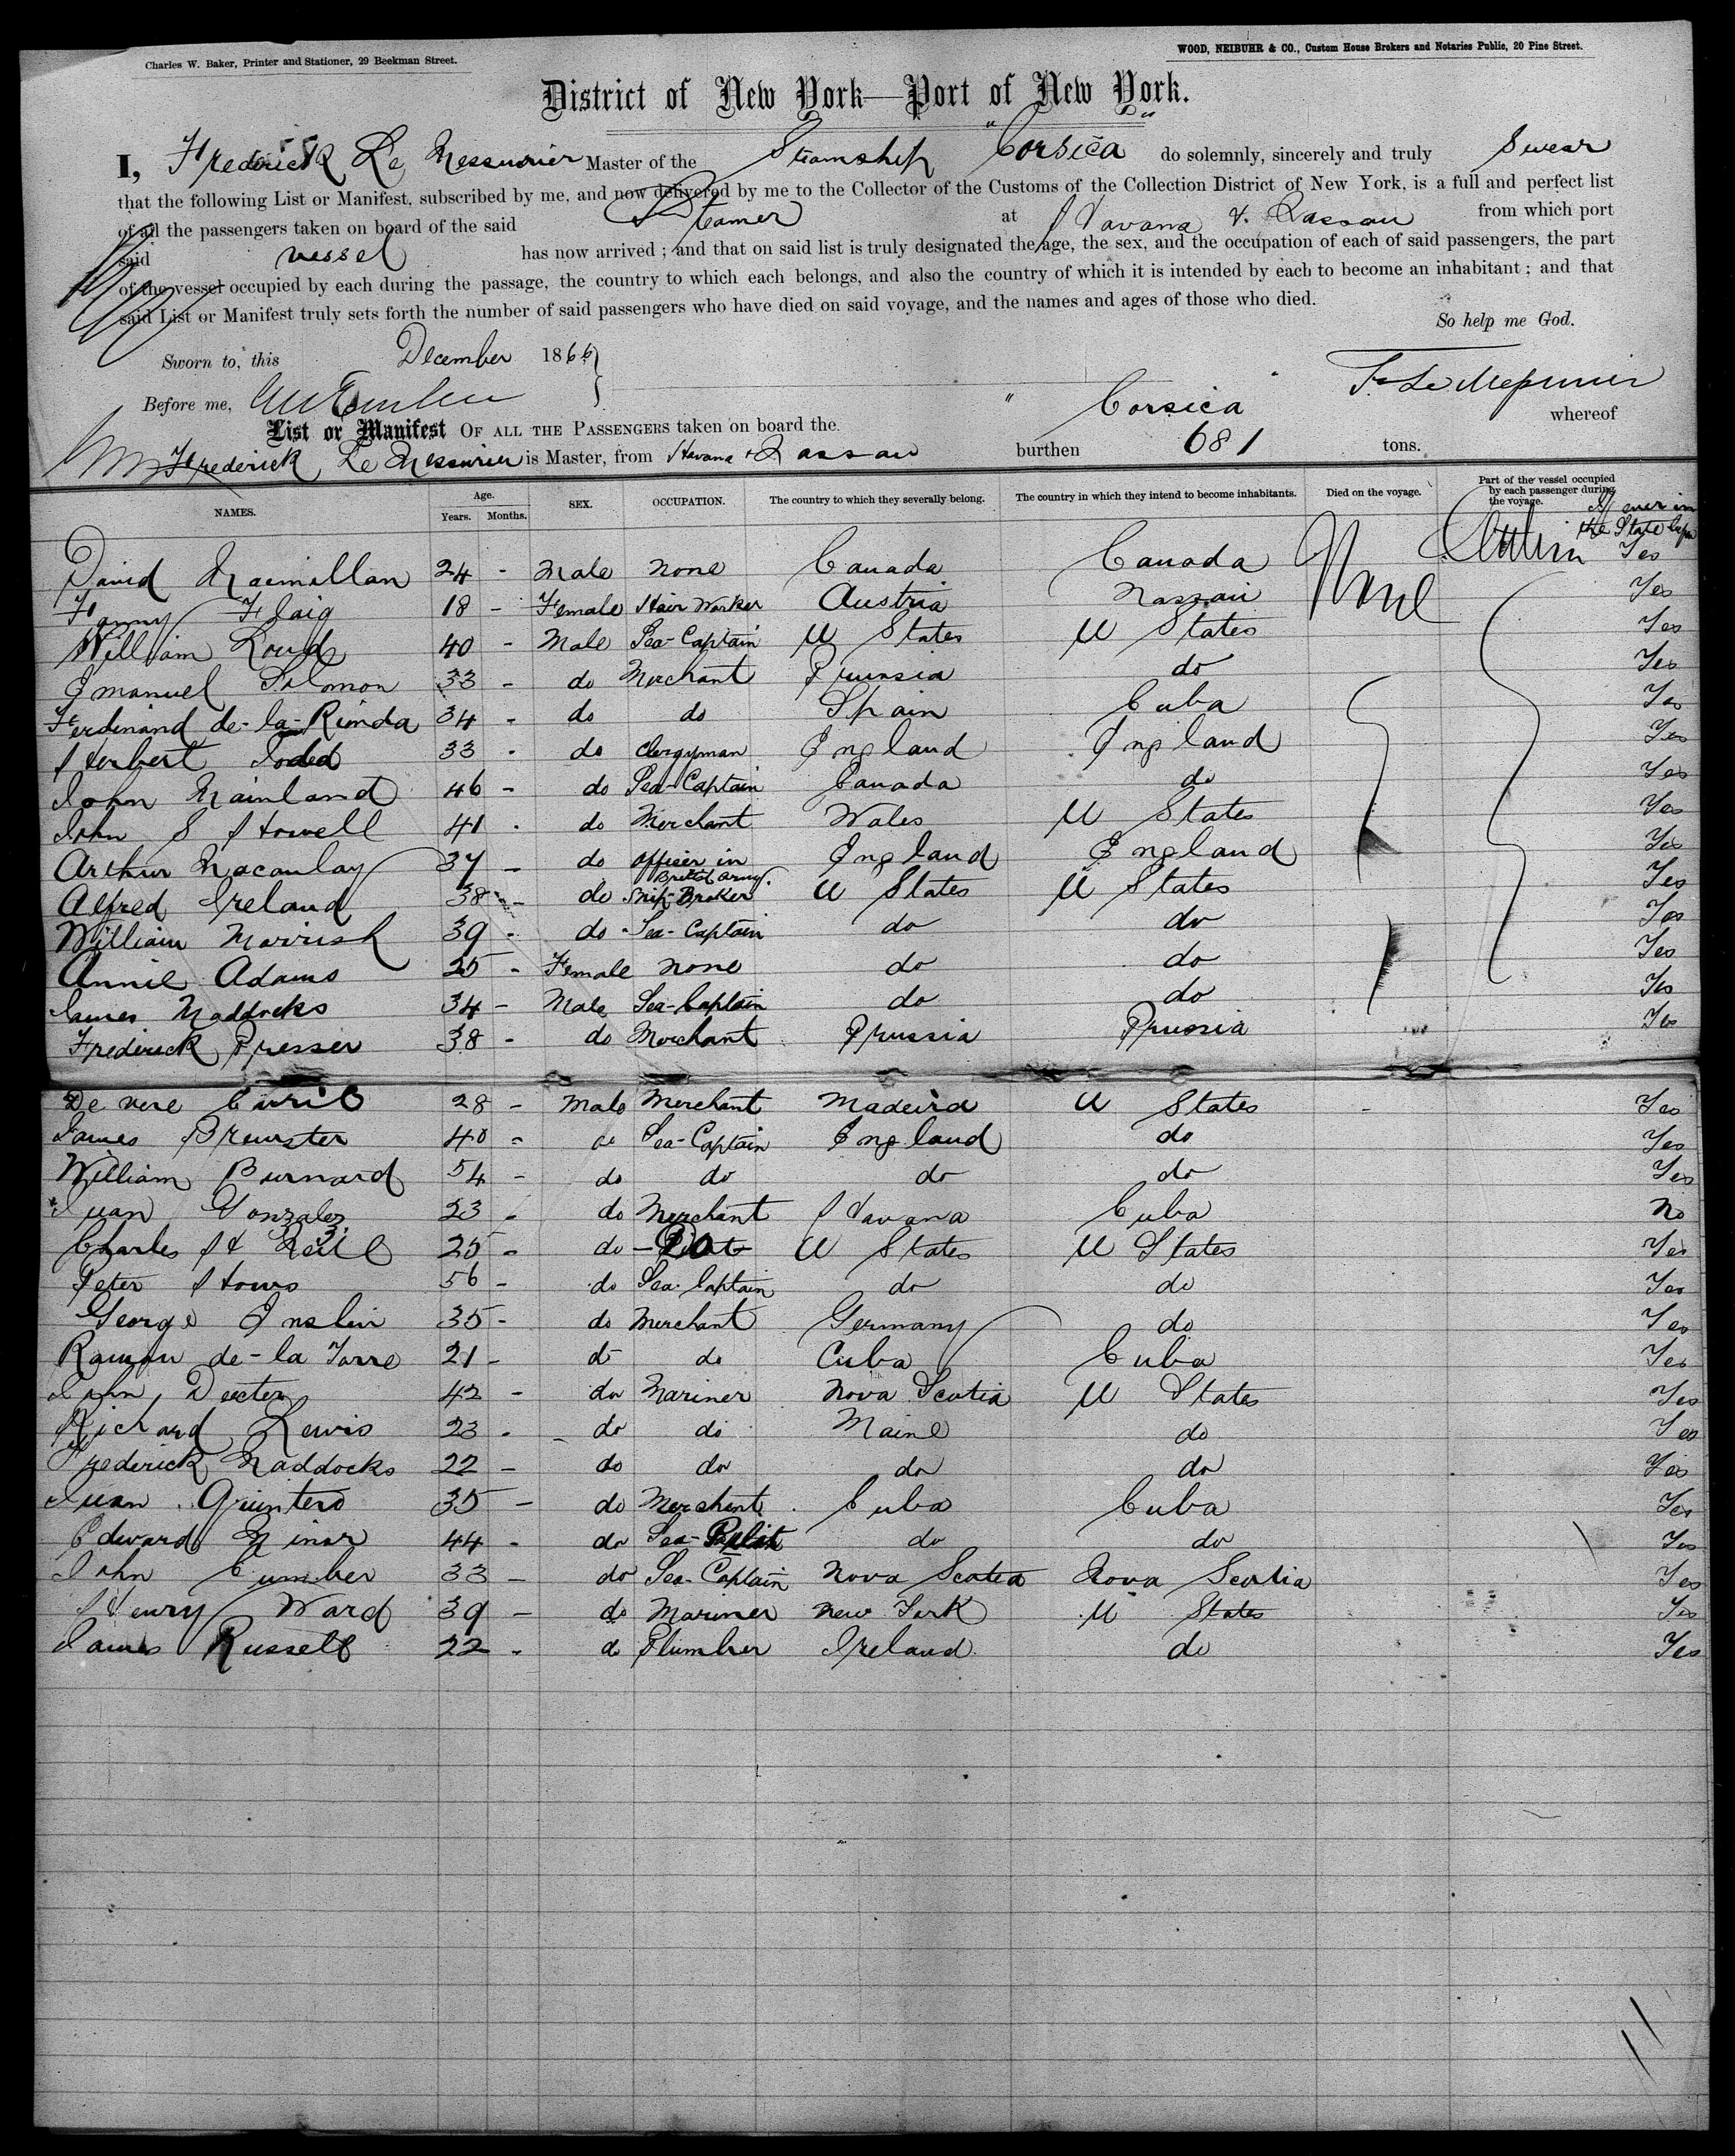 Charles W. Baker, Printer and Stationer, 29 Beekman Street.
WOOD, NEIBUHR & CO., Custom House Brokers and Notaries Public, 20 Pine Street.
District of New York—Port of New York.
I, Frederick Le Messurier Master of the Steamship "Corsica" do solemnly, sincerely and truly Swear
that the following List or Manifest, subscribed by me, and now delivered by me to the Collector of the Customs of the Collection District of New York, is a full and perfect list
of all the passengers taken on board of the said Steamer at Havana & Nassau from which port
said vessel has now arrived ; and that on said list is truly designated the age, the sex, and the occupation of each of said passengers, the part
of the vessel occupied by each during the passage, the country to which each belongs, and also the country of which it is intended by each to become an inhabitant ; and that
said List or Manifest truly sets forth the number of said passengers who have died on said voyage, and the names and ages of those who died.
So help me God.
Sworn to, this December 1866
F. Le Messurier
Before me,
List or Manifest OF ALL THE PASSENGERS taken on board the " Corsica " whereof
Frederick Le Messurier is Master, from Havana & Nassau burthen 681 tons.
NAMES. Age. Years. Months. SEX. OCCUPATION. The country to which they severally belong. The country in which they intend to become inhabitants. Died on the voyage. Part of the vessel occupied by each passenger during the voyage.
If ever in the State before
David Macmillan 24 - Male None Canada Canada None Cabin Yes
Fanny Flaig 18 - Female Hair Worker Austria Nassau Yes
William Loud 40 - Male Sea-Captain U States U States Yes
Emanuel Solomon 33 - do Merchant Prussia do Yes
Ferdinand de-la-Rionda 34 - do do Spain Cuba Yes
Herbert Todd 33 - do Clergyman England England Yes
John Mainland 46 - do Sea-Captain Canada do Yes
John S Howell 41 - do Merchant Wales U States Yes
Arthur Macaulay 37 - do officer in British army. England England Yes
Alfred Ireland 38 - do Ship-Broker U States U States Yes
William Morrish 39 - do Sea-Captain do do Yes
Annie Adams 25 - Female None do do Yes
James Maddocks 34 - Male Sea-Captain do do Yes
Frederick Presser 38 - do Merchant Prussia Prussia Yes
De vere 28 - Male Merchant Madeira U States Yes
James Brewster 40 - do Sea-Captain England do Yes
William Burnard 54 - do do do do Yes
Juan Gonzalez 23 - do Merchant Havana Cuba No
Charles H Neill 25 - do Do U States U States Yes
Peter Hows 56 - do Sea-Captain do do Yes
George Enslin 35 - do Merchant Germany do Yes
Ramon de-la Torre 21 - do do Cuba Cuba Yes
John Dexter 42 - do Mariner Nova Scotia U States Yes
Richard Lewis 23 - do do Maine do Yes
Frederick Maddocks 22 - do do do do Yes
Juan Quintero 35 - do Merchant Cuba Cuba Yes
Edward 44 - do Sea- do do Yes
John Cumber 33 - do Sea-Captain Nova Scotia Nova Scotia Yes
Henry Ward 39 - do Mariner New York U States Yes
James Russell 22 - do Plumber Ireland do Yes